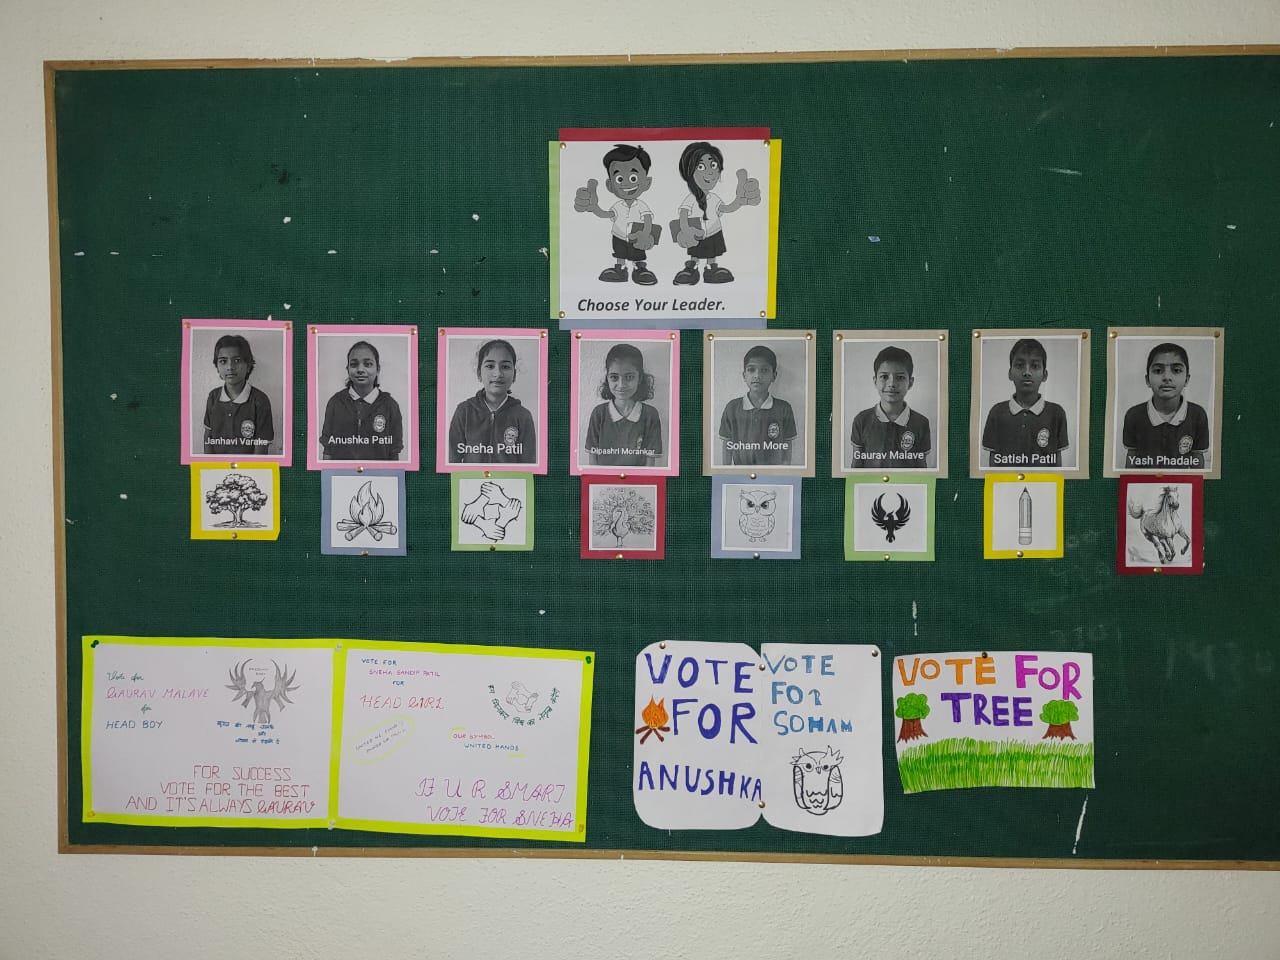 Choose Your Leader.
Janhavi Varake
Anushka Patil
Sneha Patil
Dipashri Morankar
Soham More
Gaurav Malave
Satish Patil
Yash Phadale
Vote for
GAURAV MALAVE
for
HEAD BOY
FOR SUCCESS
VOTE FOR THE BEST
AND IT'S ALWAYS GAURAV
VOTE FOR
SNEHA SANDIP PATIL
FOR
HEAD GIRL
OUR SYMBOL
UNITED HANDS
IF U R SMART
VOTE FOR SNEHA
VOTE
FOR
ANUSHKA
VOTE
FOR
SOHAM
VOTE FOR
TREE